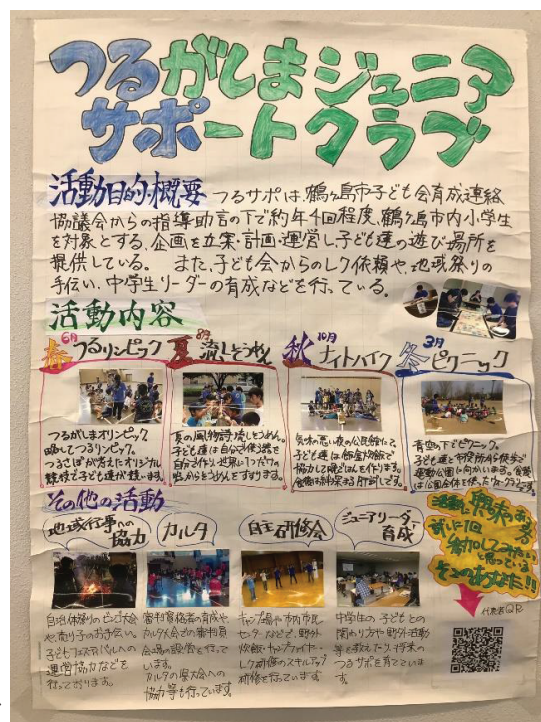 つるがしまジュニア
サポートクラブ
活動目的・概要
つるサポは、鶴ヶ島市子ども会育成連絡
協議会からの指導助言の下で約年4回程度、鶴ヶ島市内小学生
を対象とする、企画を立案・計画・運営し子ども達の遊び場所を
提供している。 また、子ども会からのレク依頼や、地域祭りの
手伝い、中学生リーダーの育成などを行っている。
活動内容
春 6月 つるリンピック
つるがしまオリンピック
略してつるリンピック。
つるさぽが考えたオリジナル
競技で子ども達が競います。
夏 8月 流しそうめん
夏の風物詩流しそうめん。
子ども達は自分で使う器を
自分で作り、世界に1つだけの
器からそうめんをすすります。
秋 10月 ナイトハイク
気味の悪い夜の公民館にて。
子ども達は飯盒炊飯で
協力して晩ごはんを作ります。
食後は斜め深まる肝試しです。
冬 3月 ピクニック
青空の下でピクニック。
子ども達と市役所から徒歩で
運動公園に向かいます。食後
は公園全体を使ったウォークラリーです。
その他の活動
地域行事への
協力
自治体祭りのビンゴ大会
や売り子のお手伝い。
子どもフェスティバルへの
運営協力などを
行っております。
カルタ
審判資格者の育成や、
カルタ大会での審判員
会場の設営を行って
います。
カルタの県大会への
協力等も行っています。
自主研修会
キャンプ場や市内市民
センターなどで、野外
炊飯・キャンプファイヤー・
レク研修のスキルアップ
研修を行っています。
ジュニアリーダー
育成
中学生の子どもとの
関わり方や野外活動
等を教えたり、将来の
つるサポを育てていま
す。
活動に興味のある方
試しに1回
参加してみたい
と思っている
そこのあなた!!
代表者QR